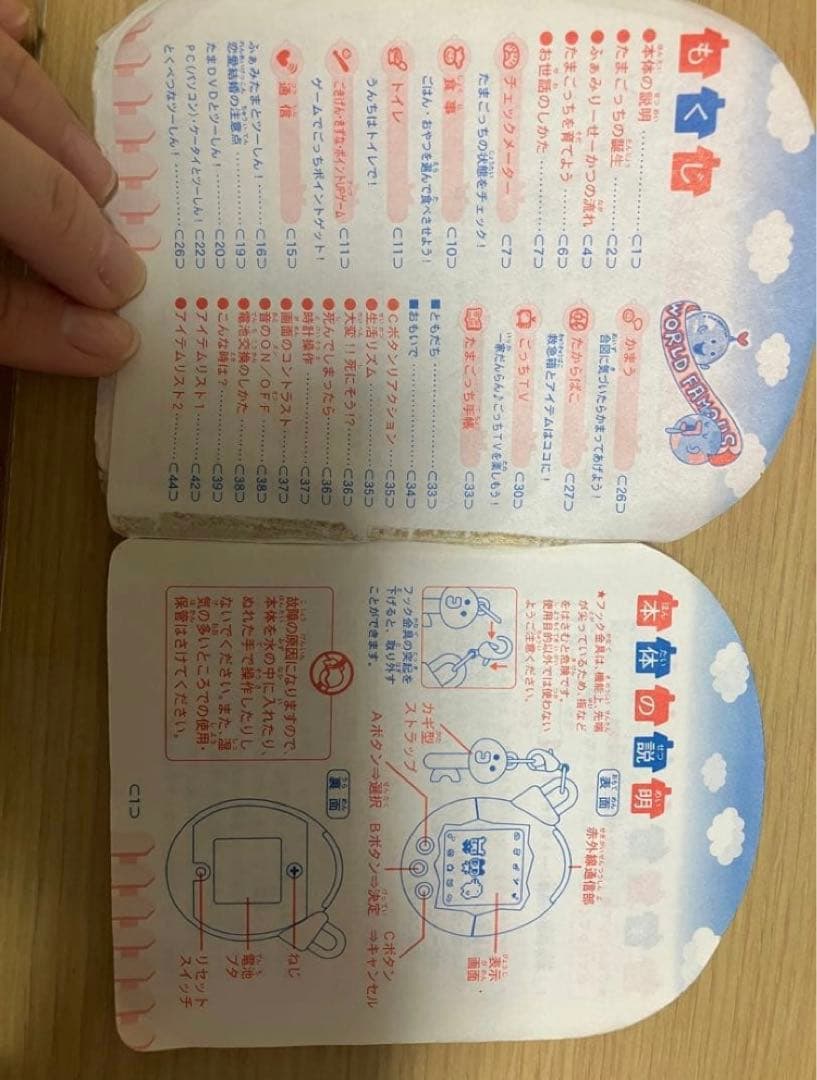 もくじ
●本体の説明…………⊂1⊃
●たまごっちの誕生…………⊂2⊃
●ふぁみりーせーかつの流れ……⊂4⊃
●たまごっちを育てよう…………⊂6⊃
●お世話のしかた…………⊂7⊃
チェックメーター ⊂7⊃
たまごっちの状態をチェック!
食事 ⊂10⊃
ごはん・おやつを選んで食べさせよう!
トイレ ⊂11⊃
うんちはトイレで!
ごきげん・きずな・ポイントUPゲーム ⊂11⊃
ゲームでごっちポイントゲット!
通信 ⊂15⊃
ふぁみたまとツーしん!…………⊂16⊃
恋愛結婚の注意点…………⊂19⊃
たまDVDとツーしん!…………⊂20⊃
PC(パソコン)・ケータイとツーしん!⊂22⊃
とくべつなツーしん!…………⊂26⊃
WORLD FAMOUS
かまう ⊂26⊃
合図に気づいたらかまってあげよう!
たからばこ ⊂27⊃
救急箱とアイテムはココに!
ごっちTV ⊂30⊃
一家だんらん♪ごっちTVを楽しもう!
たまごっち手帳 ⊂33⊃
■ともだち…………⊂33⊃
■おもいで…………⊂34⊃
●Cボタンリアクション…………⊂35⊃
●生活リズム…………⊂35⊃
●大変!!死にそう!?…………⊂36⊃
●死んでしまったら…………⊂36⊃
●時計操作…………⊂37⊃
●画面のコントラスト…………⊂37⊃
●音のON/OFF…………⊂38⊃
●電池交換のしかた…………⊂38⊃
●こんな時は?…………⊂39⊃
●アイテムリスト1…………⊂42⊃
●アイテムリスト2…………⊂44⊃
本体の説明
★フック金具は、機能上、先端
が尖っているため、指など
をはさむと危険です。
使用目的以外では使わない
ようご注意ください。
フック金具の突起を
下げると、取り外す
ことができます。
表面
赤外線通信部
カギ型
ストラップ
表示
画面
Aボタン⇒選択
Bボタン⇒決定
Cボタン
⇒キャンセル
故障の原因になりますので、
本体を水の中に入れたり、
ぬれた手で操作したりし
ないでください。また、湿
気の多いところでの使用・
保管はさけてください。
裏面
ねじ
電池
フタ
リセット
スイッチ
⊂1⊃